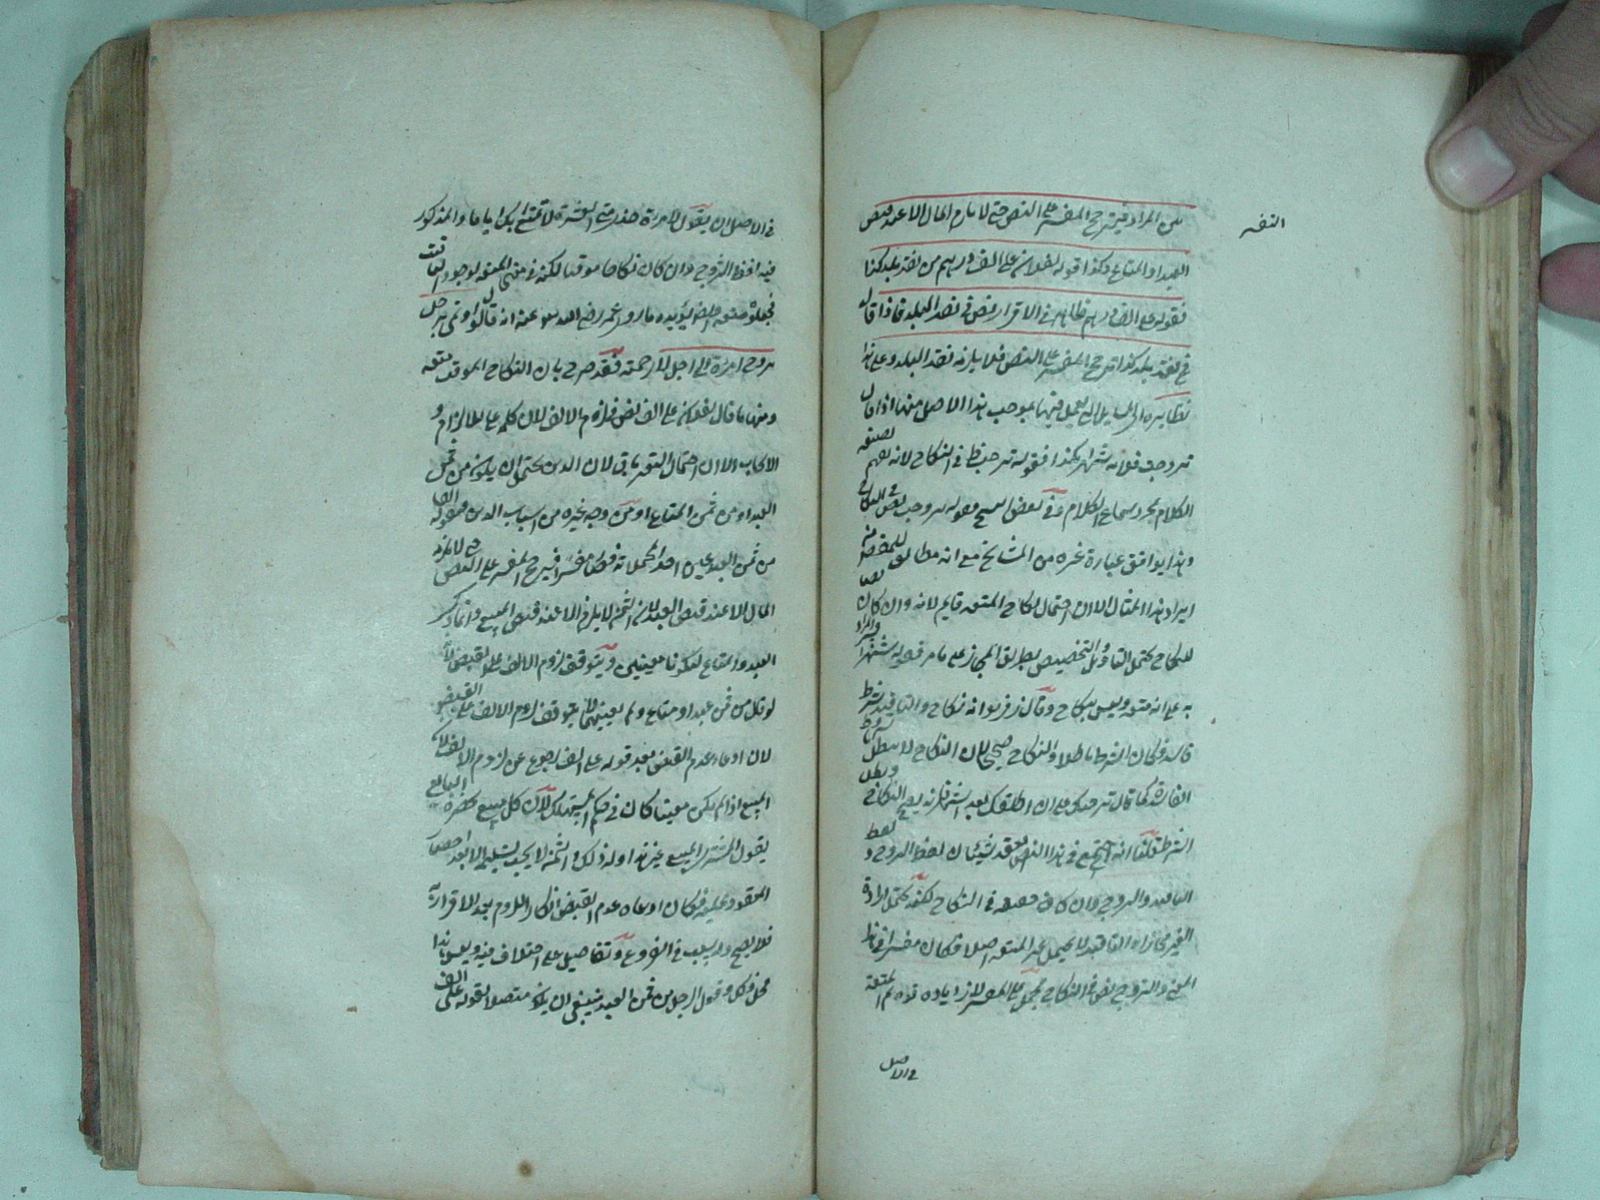 المراد فيترجح المفسر على النص حتى لا يلزم المال الا عند قبض
التفسير
العبد او المتاع وكذا قوله لفلان على الف درهم من نقد بلد كذا
فقوله على الف درهم ظاهر في الاقرار نص في نقد البلد فاذا قال
من نقد بلد كذا ترجح المفسر على النص فلا يلزمه نقد البلد وعلى هذا
نظايره اى المسايل التى يعمل فيها بموجب هذا الاصل منها اذا قال
تزوجت فلانة شهرا بكذا فقوله تزوجت ظ في النكاح لانه يفهم بصيغة
الكلام بمجرد سماع الكلام وفي بعض النسخ وقوله تزوجت نص في النكاح
وهذا يوافق عبارة غيره من المشايخ مع انه مطابق
ايراد هذا المثال الا ان احتمال نكاح المتعة قايم لانه وان كان نصا
للنكاح يحتمل التاويل والتخصيص بطريق المجاز على ما مر قوله شهرا
به على انه متعة وليس بنكاح وقال زفر هو انه نكاح والتاقيت شرط
فاسد فكان الشرط باطلا والنكاح صحيحا لان النكاح لا يبطل بالشروط
الفاسدة كما قال تزوجتك على ان اطلقك بعد شهر فانه يصح النكاح ويبطل
الشرط قلنا انه اجتمع في هذا العقد شيئان لفظ التزوج و لفظ
التاقيت والتزوج وان كان حقيقة في النكاح لكنه يحتمل ارادة
الغير مجازا والتاقيت لا يحتمل غير المتعة اصلا فكان مفسرا في هذا
المعنى والتزوج نص في النكاح فيحمل على المفسر لزيادة قوة ثم المتعة
في الاصل
في الاصل ان يقول لامرءة خذى منى العشرة لاتمتع بك اياما والمذكور
فيه لفظ التزوج وان كان نكاحا موقتا لكنه في معنى المتعة لوجود التاقيت
فجعلوه متعة ايضا يؤيده ما روى عمر رضى الله عنه انه قال لو اوتى برجل
تزوج امراة الى اجل لارجمته فقد صرح بان النكاح الموقت متعة
ومنها ما قال لفلان على الف نص في لزوم الالف لان كلمة على للالزام و
الايجاب الا ان احتمال التغير باق لان الدين يحتمل ان يكون من ثمن
العبد او من ثمن المتاع او من وجه غيره من اسباب الدين وبقوله
من ثمن العبد عين احد المحتملات فصار مفسرا فيرجح المفسر على النص حتى لا يلزمه
المال الا عند قبض العبد لان الثمن لا يلزم الا عند قبض المبيع وانما ذكر
العبد والمتاع ليكونا معينين ويتوقف لزوم الالف على القبض لانه
لو قال من ثمن عبد او متاع ولم يعينهما لا يتوقف لزوم الالف على القبض
لان ادعاء عدم القبض بعد قوله على الف رجوع عن لزوم الالف لان
المبيع اذا لم يكن معينا كان في حكم المستهلك لان كل مبيع يحضره البايع
يقول المشترى المبيع غير هذا وله ذلك والثمن لا يجب تسليمه الا بعد احضار
المعقود عليه فكان ادعاء عدم القبض انكار اللزوم بعد الاقرار به
فلا يصح وله سبب في الفروع وتفاصيل على اختلاف فيه وليس هذا
محل ذكره وقول الرجل من ثمن العبد ينبغي ان يكون متصلا بقوله على الف